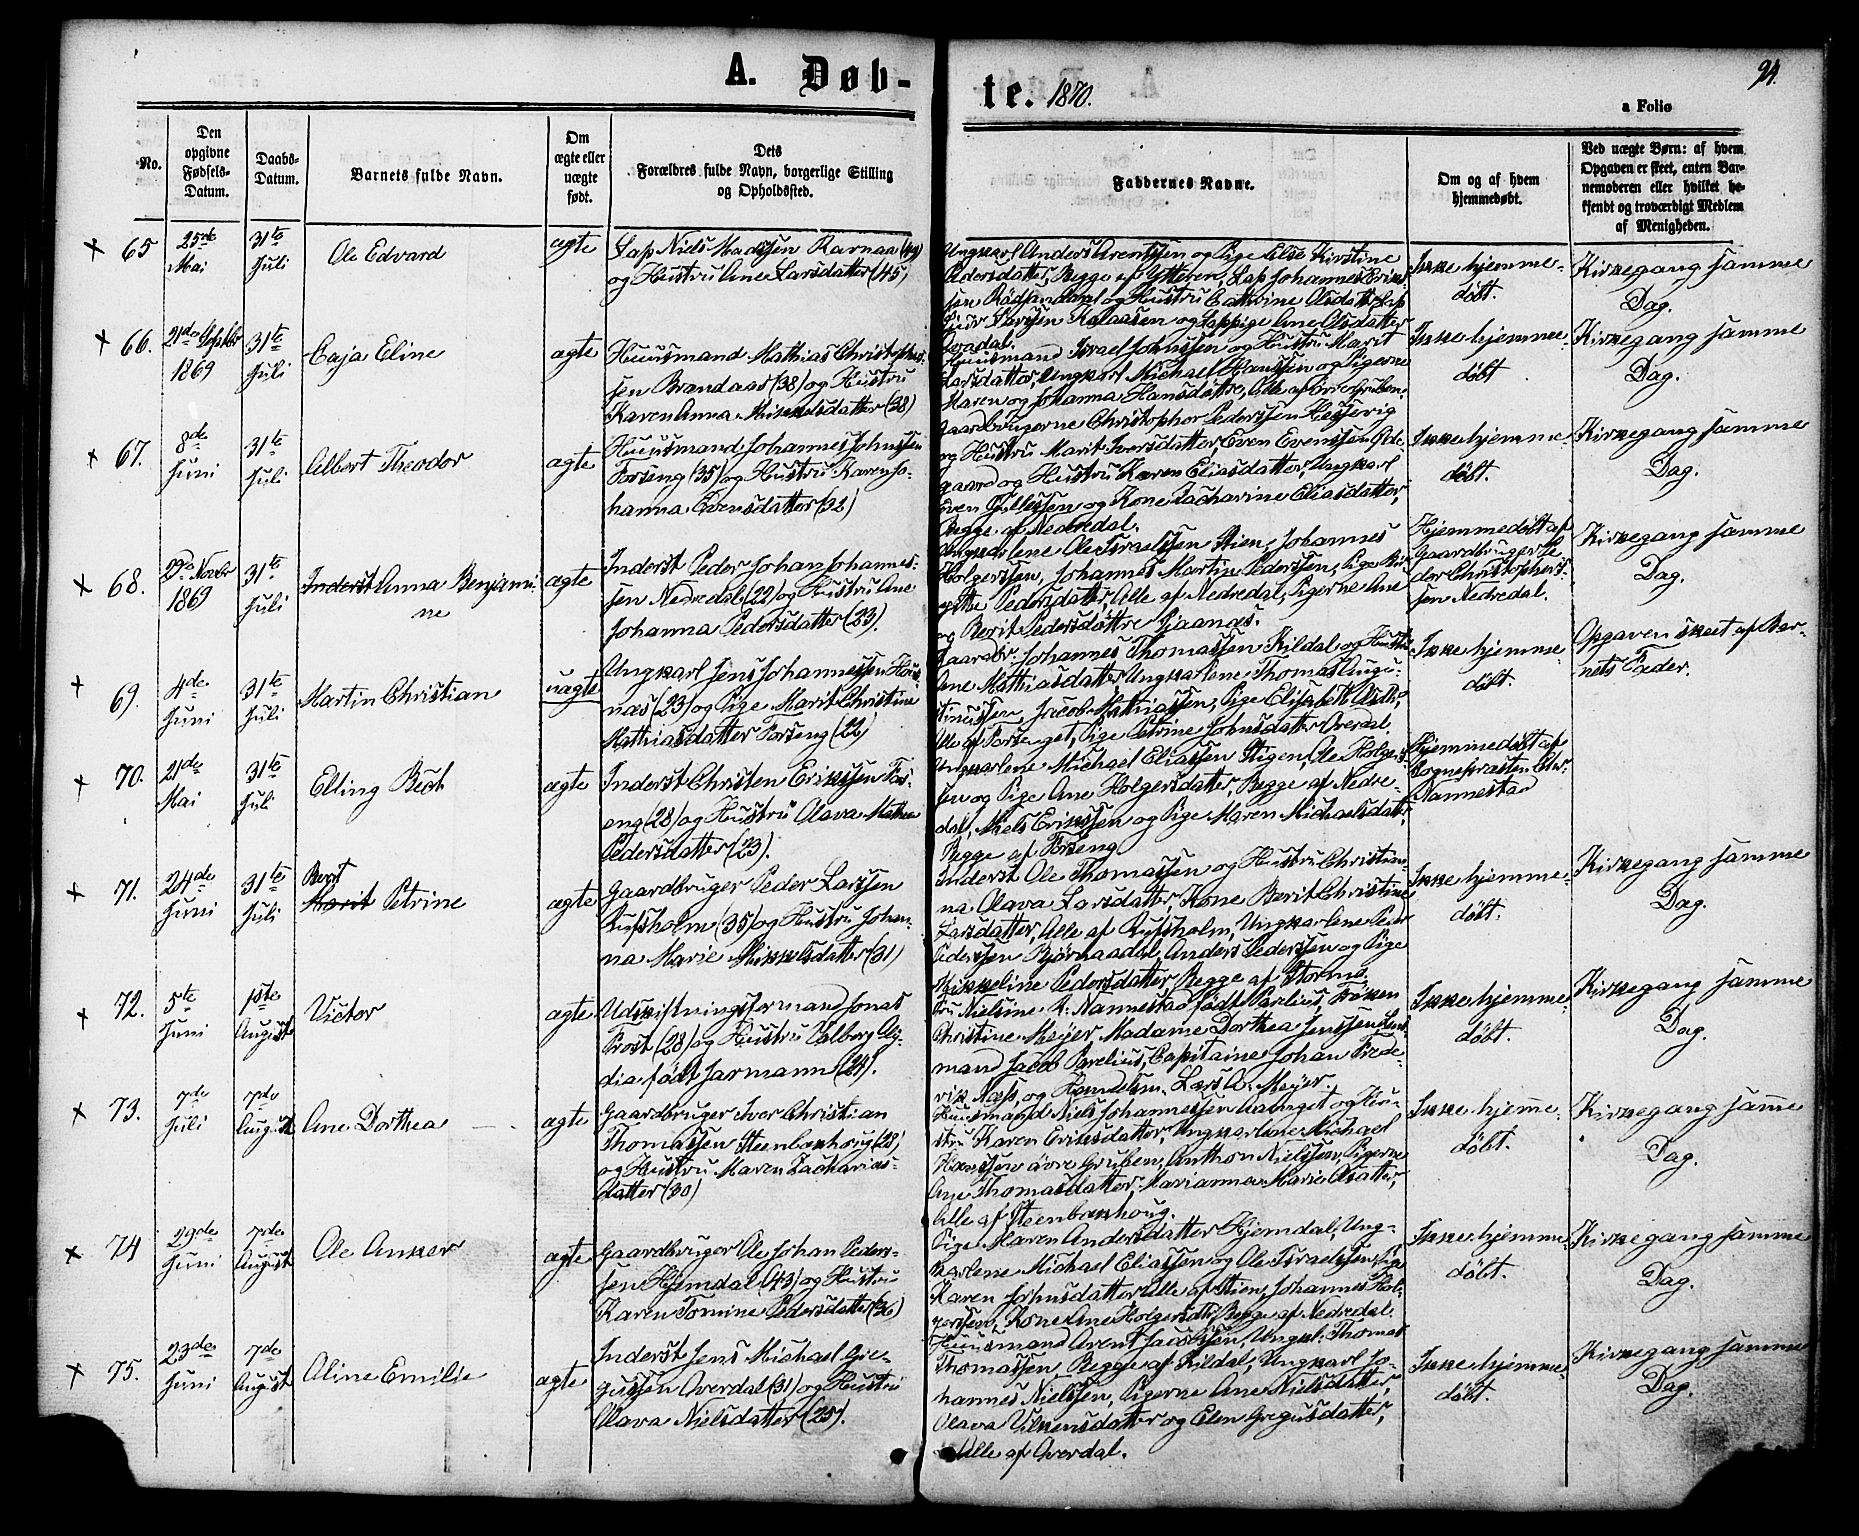 A. Døb-
te. 1870.
94.
a Folio
No.
Den opgivne Fødsels-Datum.
Daabs-Datum.
Barnets fulde Navn.
Om ægte eller uægte født.
Dets Forældres fulde Navn, borgerlige Stilling og Opholdssted.
Faddernes Navne.
Om og af hvem hjemmedøbt.
Ved uægte Børn: af hvem Opgaven er skeet, enten Barnemoderen eller hvilket bekjendt og troværdigt Medlem af Menigheden.
65
25de Mai
31te Juli
Ole Edvard
ægte
Lap Niels Madssen Ravnaa (49)
og Hustru Ane Larsdatter (45)
Ungkarl Anders Arentssen og Pige Else Kirstine
Pedersdatter, Begge af Ytteren, Lap Johannes Erik-
sen Rødfjeldet og Hustru Cathrine Olsdatter, Lap
Larssen Kalaasen og Lappige Ane Olsdatter
Ikke hjemme-
døbt.
Kirkegang samme
Dag.
66.
21de Septbr 1869
31te Juli
Caja Eline
ægte
Huusmand Mathias Christopher-
sen Brandaas (38) og Hustru
Karen Anna Mikkelsdatter (38)
Huusmand Israel Johnssen og Hustru Marit
Larsdatter, Ungkarl Michael Hanssen og Pigerne
Maren og Johanna Hansdøttre, Alle af øvre Gruben.
Ikke hjemme-
døbt
Kirkegang samme
Dag.
67.
8de Juni
31te Juli
Albert Theodor
ægte
Huusmand Johannes Johnssen
Forseng (35) og Hustru Karen Jo-
hanna Evensdatter (32)
Gaardbrugerne Christopher Pederssen Hessevig
og Hustru Marit Iversdatter, Even Evenssen Øde-
gaard og Hustru Karen Eliasdatter, Ungkarl
Even Tellefsen og Kone Zacharine Eliasdatter,
Begge af Nedredal.
Ikke hjemme-
døbt.
Kirkegang samme
Dag.
68.
29de Novbr 1869
31te Juli
Inderst Anna Benjami-
ne
ægte
Inderst Peder Johan Johannes-
sen Nedredal (22) og Hustru Ane
Johanna Pedersdatter (23).
Ungkarlene Ole Israelssen Stien, Johannes
Holgerssen, Johannes Martin Pederssen, Pige Bir-
gitte Pedersdatter, Alle af Nedredal, Pigerne Ane
og Berit Pedersdøttre Sjaanæs.
Hjemmedøbt af
Gaardbruger Pe-
der Christophers-
sen Nedredal.
Kirkegang samme
Dag.
69.
4de Juni
31te Juli
Martin Christian
uægte
Ungkarl Jens Johannessen
næs (23) og Pige Marit Christine
Mathiasdatter Forseng (22)
Gaardbr. Johannes Thomassen Kildal og Hustru
Ane Mathiasdatter, Ungkarlene Thomas Augu-
stinussen, Jacob Mathiassen, Pige Elisabeth Olsdtr,
Alle af Forsenget, Pige Petrine Johnsdatter Overdal.
Ikke hjemme-
døbt.
Opgaven skeet af Bar-
nets Fader.
70.
21de Mai
31te Juli
Elling Bech
ægte
Inderst Christen Erikssen For-
seng (28) og Hustru Olava Mathea
Pedersdatter (23).
Ungkarlene Michael Eliassen Stigen, Ole Holgers-
sen og Pige Ane Holgersdatter, Begge af Nedre-
dal, Niels Erikssen og Pige Maren Michaelsdatter,
Begge af Forseng.
Hjemmedøbt af
Sognepræsten
Nannestad
71.
24de Juni
31te Juli
Berit
Marit Petrine
ægte
Gaardbruger Peder Larssen
Rufsholm (35) og Hustru Johan-
na Marie Mikkelsdatter (31)
Inderst Ole Thomassen og Hustru Christian-
na Olava Larsdatter, Kone Berit Christine
Larsdatter, Alle af Rufsholm, Ungkarlene Peder
Pederssen Bjørnaadal, Anders Pederssen og Pige
Mikkeline Pedersdatter, Begge af Storme.
Ikke hjemme-
døbt.
Kirkegang samme
Dag.
72.
5te Juni
1ste August
Victor
ægte
Udskiftningsformand Jonas
Frost (28) og Hustru Valborg Ly-
dia født Jarmann (24).
Fru Nielsine R. Nannestad født Parelius, Frøken
Christine Meyer, Madame Dorthea Jenssen, Lens-
mand Jacob Parelius, Capitaine Johan Frede-
rik Næss, og Handelsm. Lars A. Meyer.
Ikke hjemme-
døbt.
Kirkegang samme
Dag.
73.
7de Juli
7de August
Ane Dorthea
ægte
Gaardbruger Iver Christian
Thomassen Steenbækhoug (28)
og Hustru Maren Zacharias-
datter (30)
Huusmand Niels Johannessen Aanget og Hu-
stru Karen Eriksdatter, Ungkarlene Michael
Hanssen øvre Gruben, Anthon Nielssen, Pigerne
Ane Thomasdatter, Marianne Marie Olsdatter,
Alle af Steenbækhoug.
Ikke hjemme-
døbt.
Kirkegang samme
Dag.
74
29de Juni
7de August
Ole Anker
ægte
Gaardbruger Ole Johan Peders-
sen Hjemdal (43) og Hustru
Karen Tomine Pedersdatter (36)
Pige Maren Andersdatter Hjemdal, Ung-
karlene Michael Eliassen og Ole Israelssen, Pige
Karen Johnsdatter, Alle af Stien, Johannes Hol-
gerssen, Kone Ane Holgersdtr, Begge af Nedredal.
Ikke hjemme-
døbt.
Kirkegang samme
Dag.
75.
23de Juni
7de August
Oline Emilie
ægte
Inderst Jens Michael Gre-
gussen Overdal (31) og Hustru
Olava Nielsdatter (25).
Huusmand Arent Jacobssen, Ungk. Thomas
Thomassen, Begge af Kildal, Ungkarl Jo-
hannes Nielssen, Pigerne Ane Nielsdatter,
Olava Vilkensdatter og Elen Gregusdatter,
Alle af Overdal.
Ikke hjemme-
døbt.
Kirkegang samme
Dag.